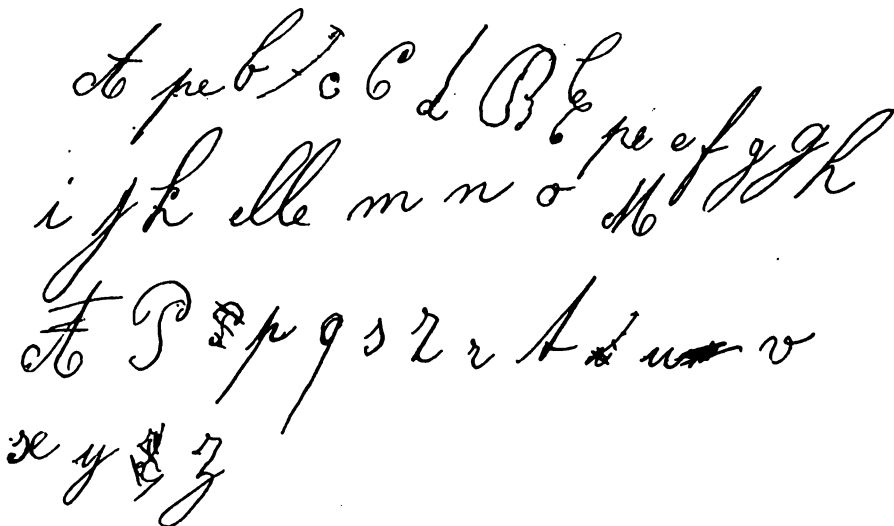 A pe b c C d B E pe e f g g h
i j k elle m n o M
A P p q s z r t u v
x y z